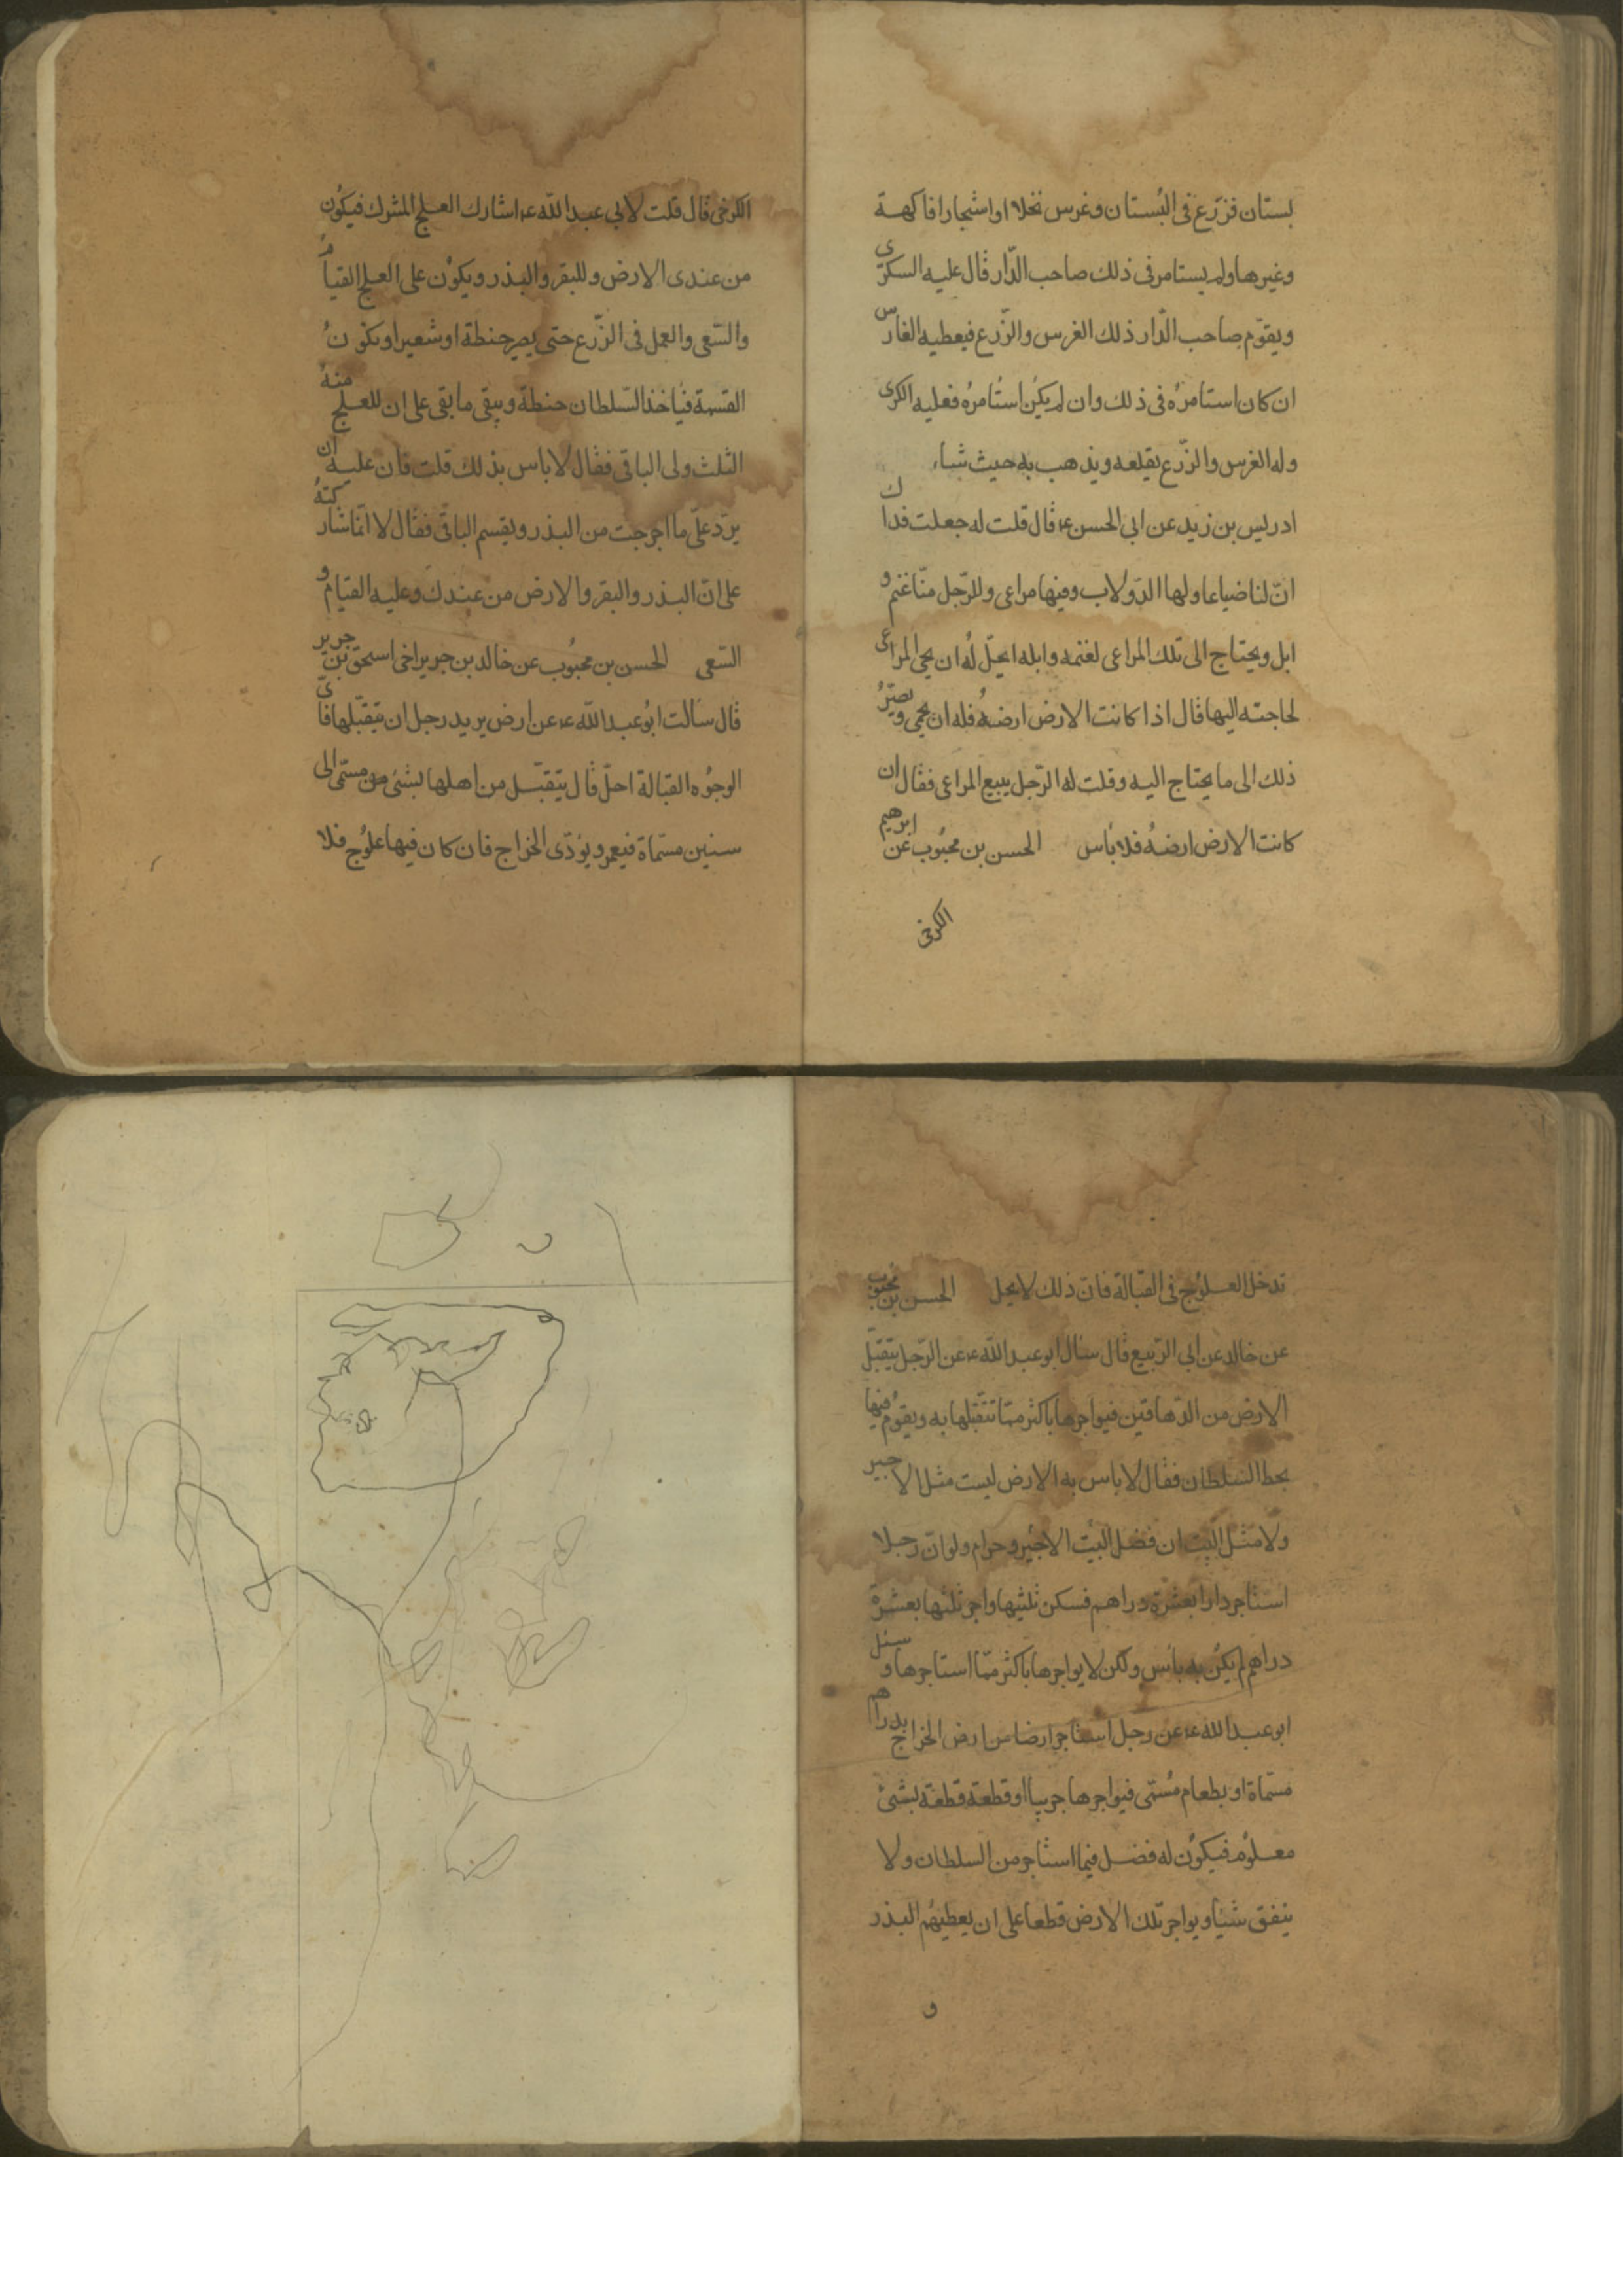 بستان فزرع فى البُستان وغرس نخلا او اشجارا فاكهة
وغيرها ولم يستامر فى ذلك صاحب الدّار قال عليه السكرى
ويقوّم صاحب الدّار ذلك الغرس والزّرع فيعطيه الغارس
ان كان استامرُه فى ذلك وان لم يكن استامرُه فعليه الكرى
وله الغرس والزّرع يقلعه ويذهب به حيث شاء
ادريس بن زيد عن ابى الحسن ع قال قلت له جعلت فداك
انّ لنا ضياعا ولها الدّولاب وفيها مراعى وللرّجل منّا غنم و
ابل ويحتاج الى تلك المراعى لغنمه وابله ايحلّ لهُ ان يحمى المراعى
لحاجته اليها قال اذا كانت الارض ارضهُ فله ان يحمى ويصيّرُ
ذلك الى ما يحتاج اليه وقلت له الرّجل يبيع المراعى فقال ان
كانت الارض ارضهُ فلا باس الحسن بن محبُوب عن ابرهيم
الكرخى
الكرخى قال قلت لابى عبد اللّه ع اشارك العلج المشرك فيكُون
من عندى الارض وللبقر والبذر ويكوُن على العلج القيامُ
والسّعى والعمل فى الزّرع حتى يصير حنطة او شعيرا وتكوُنُ
القسمة فياخذ السّلطان حنطة ويبقى ما بقى على ان للعلج منهُ
الثلث ولى الباقى فقال لا باس بذلك قلت فان عليه ان
يردّ علىّ ما اخرجت من البذر ويقسم الباقى فقال لا انّما شاركتهُ
على انّ البذر والبقر والارض من عندك وعليه القيام و
السّعى الحسن بن محبُوب عن خالد بن جرير اخى اسحق بن جرير
قال سالت ابُو عبد اللّه ع عن ارض يريد رجل ان يتقبّلها فاىّ
الوجُوه القبالة احلّ قال يتقبّل من اهلها بشئ من مسمّى الى
سنين مسمّاة فيعمر ويؤدّى الخراج فان كان فيها علوُج فلا
تدخل العلوُج فى القبالة فانّ ذلك لا يحل الحسن بن محبُوب
عن خالد عن ابى الرّبيع قال سال ابو عبد اللّه ع عن الرّجل يتقبّل
الارض من الدّهاقين فيواجرها باكثر ممّا تتقبّلها به ويقومُ فيها
بحظ السّلطان فقال لا باس به الارض ليست مثل الاجير
ولا مثل البيت ان فضل البيت الاجير و حرام ولو انّ رجلا
استاجر دارا بعشرة دراهم فسكن ثلثيها واجر ثلثها بعشرة
دراهم لم يكن به باس ولكن لا يواجرها باكثر ممّا استاجرها وسئل
ابو عبد اللّه ع عن رجل استاجر ارضا من ارض الخراج بدراهم
مسمّاة او بطعام مُسمّى فيواجرها جريبا او قطعة قطعة بشئ
معلوُم فيكوُن له فضل فيما استاجر من السلطان ولا
ينفق شيئا ويواجر تلك الارض قطعا على ان يعطيهُم البذر
و